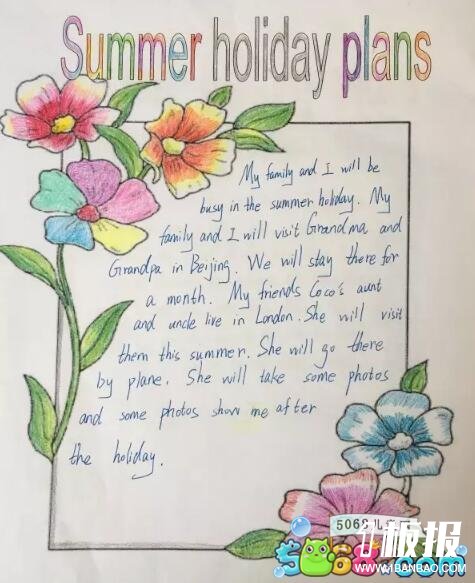 Summer holiday plans
My family and I will be
busy in the summer holiday. My
family and I will visit Grandma and
Grandpa in Beijing. We will stay there for
a month. My friends Coco's aunt
and uncle live in London. She will visit
them this summer. She will go there
by plane. She will take some photos
and some photos show me after
the holiday.
5068儿
板报
WWW.1BANBAO.COM